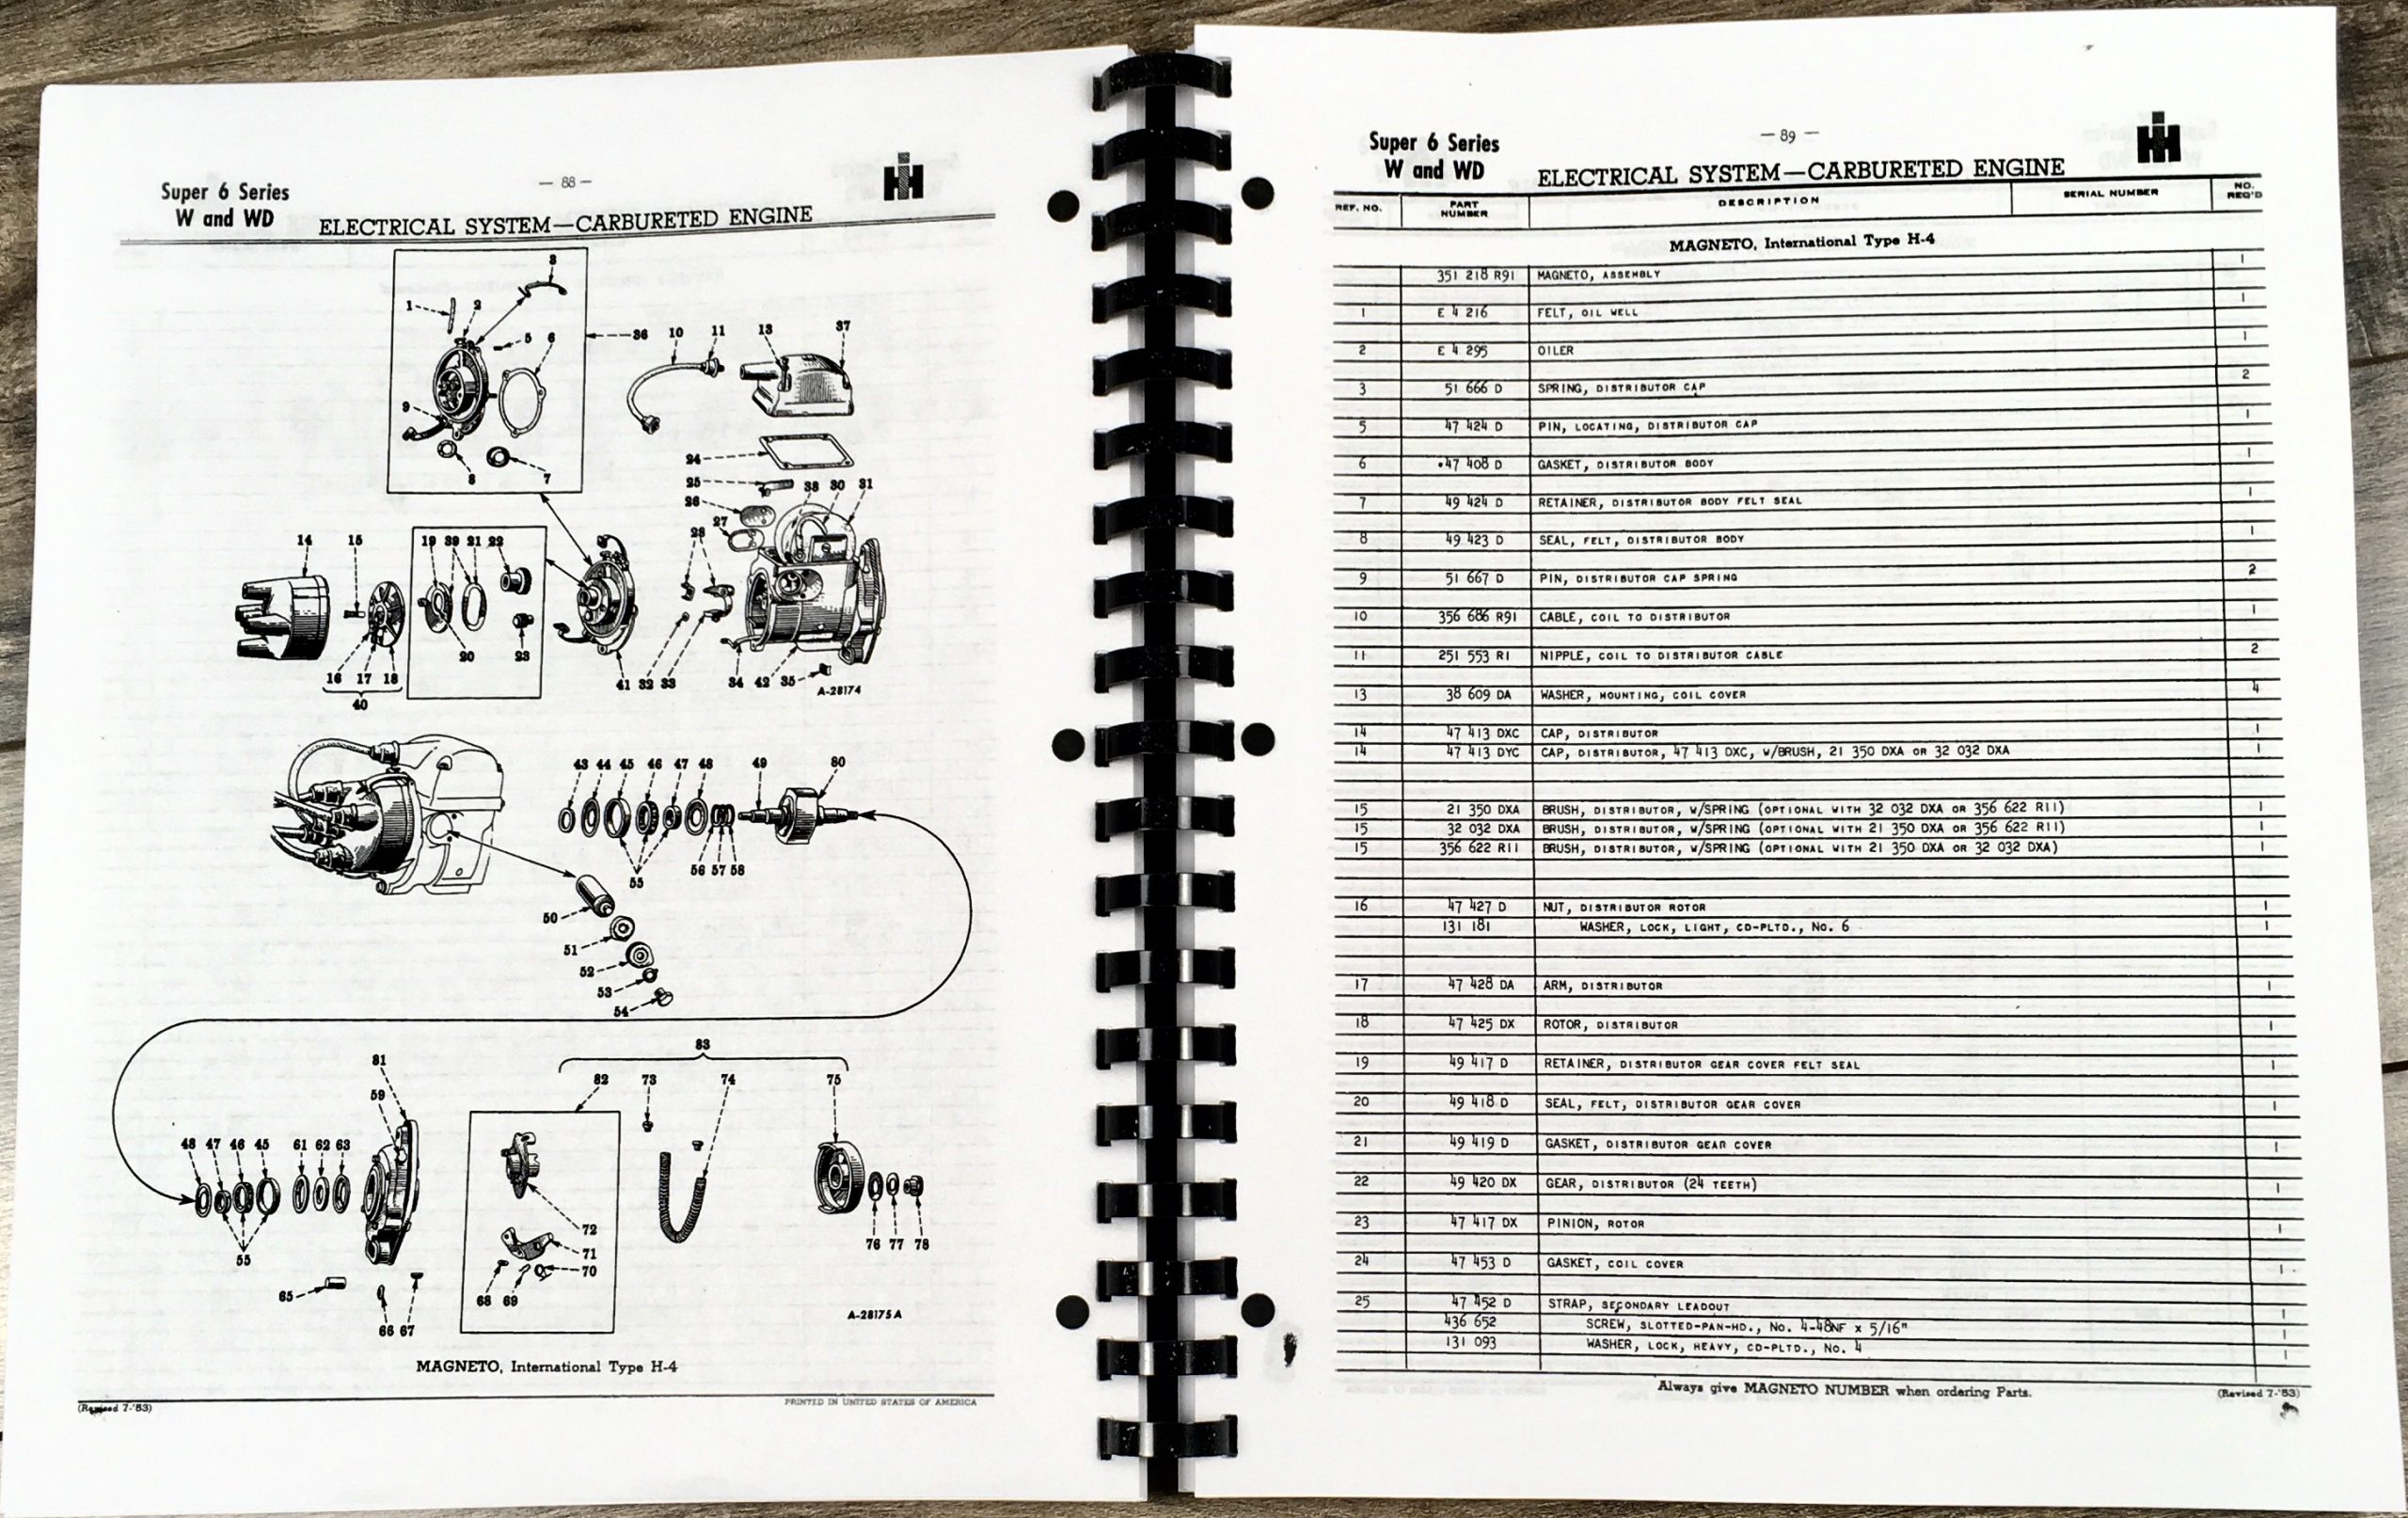 Super 6 Series
W and WD
— 88 —
IH
ELECTRICAL SYSTEM—CARBURETED ENGINE
3
1 2
5 6
36 10 11 13 37
9
8 7
24
25 38 30 31
26
27
14 15 19 39 21 22 28
20 23
16 17 18
40
41 32 33 34 42 35
A-28174
43 44 45 46 47 48 49 80
55 56 57 58
50
51
52
53
54
83
81 82 73 74 75
59
48 47 46 45 61 62 63
72
71
70
55 68 69 76 77 78
65 66 67
A-28175A
MAGNETO, International Type H-4
7-'53)
PRINTED IN UNITED STATES OF AMERICA
Super 6 Series
W and WD
— 89 —
IH
ELECTRICAL SYSTEM—CARBURETED ENGINE
REF. NO. PART NUMBER DESCRIPTION SERIAL NUMBER NO. REQ'D
MAGNETO, International Type H-4
351 218 R91 MAGNETO, ASSEMBLY 1
1 E 4 216 FELT, OIL WELL 1
2 E 4 295 OILER 1
3 51 666 D SPRING, DISTRIBUTOR CAP 2
5 47 424 D PIN, LOCATING, DISTRIBUTOR CAP 1
6 •47 408 D GASKET, DISTRIBUTOR BODY 1
7 49 424 D RETAINER, DISTRIBUTOR BODY FELT SEAL 1
8 49 423 D SEAL, FELT, DISTRIBUTOR BODY 1
9 51 667 D PIN, DISTRIBUTOR CAP SPRING 2
10 356 686 R91 CABLE, COIL TO DISTRIBUTOR 1
11 251 553 R1 NIPPLE, COIL TO DISTRIBUTOR CABLE 2
13 38 609 DA WASHER, MOUNTING, COIL COVER 4
14 47 413 DXC CAP, DISTRIBUTOR 1
14 47 413 DYC CAP, DISTRIBUTOR, 47 413 DXC, W/BRUSH, 21 350 DXA OR 32 032 DXA 1
15 21 350 DXA BRUSH, DISTRIBUTOR, W/SPRING (OPTIONAL WITH 32 032 DXA OR 356 622 R11) 1
15 32 032 DXA BRUSH, DISTRIBUTOR, W/SPRING (OPTIONAL WITH 21 350 DXA OR 356 622 R11) 1
15 356 622 R11 BRUSH, DISTRIBUTOR, W/SPRING (OPTIONAL WITH 21 350 DXA OR 32 032 DXA) 1
16 47 427 D NUT, DISTRIBUTOR ROTOR 1
131 181 WASHER, LOCK, LIGHT, CD-PLTD., No. 6 1
17 47 428 DA ARM, DISTRIBUTOR 1
18 47 425 DX ROTOR, DISTRIBUTOR 1
19 49 417 D RETAINER, DISTRIBUTOR GEAR COVER FELT SEAL 1
20 49 418 D SEAL, FELT, DISTRIBUTOR GEAR COVER 1
21 49 419 D GASKET, DISTRIBUTOR GEAR COVER 1
22 49 420 DX GEAR, DISTRIBUTOR (24 TEETH) 1
23 47 417 DX PINION, ROTOR 1
24 47 453 D GASKET, COIL COVER 1
25 47 452 D STRAP, SECONDARY LEADOUT 1
436 652 SCREW, SLOTTED-PAN-HD., No. 4-48NF x 5/16" 1
131 093 WASHER, LOCK, HEAVY, CD-PLTD., No. 4 1
Always give MAGNETO NUMBER when ordering Parts.
(Revised 7-'53)